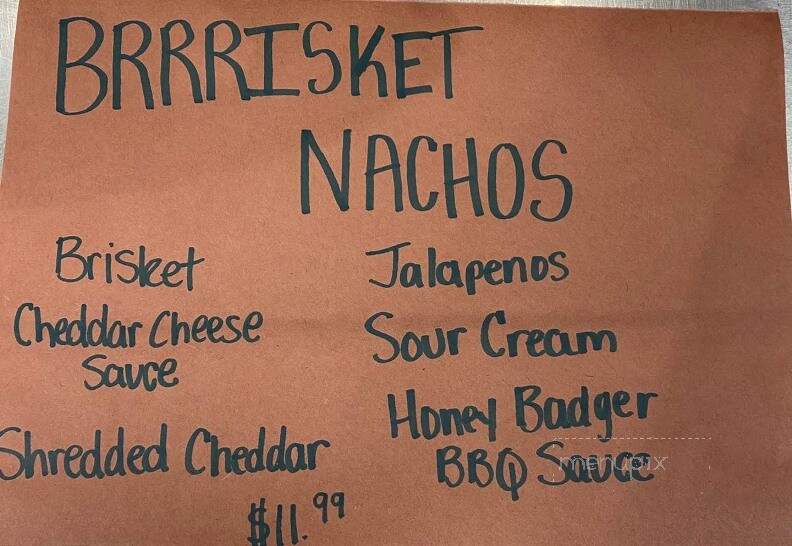 BRRRISKET
NACHOS
Brisket
Cheddar Cheese
Sauce
Shredded Cheddar
$11.99
Jalapenos
Sour Cream
Honey Badger
BBQ Sauce
menupix